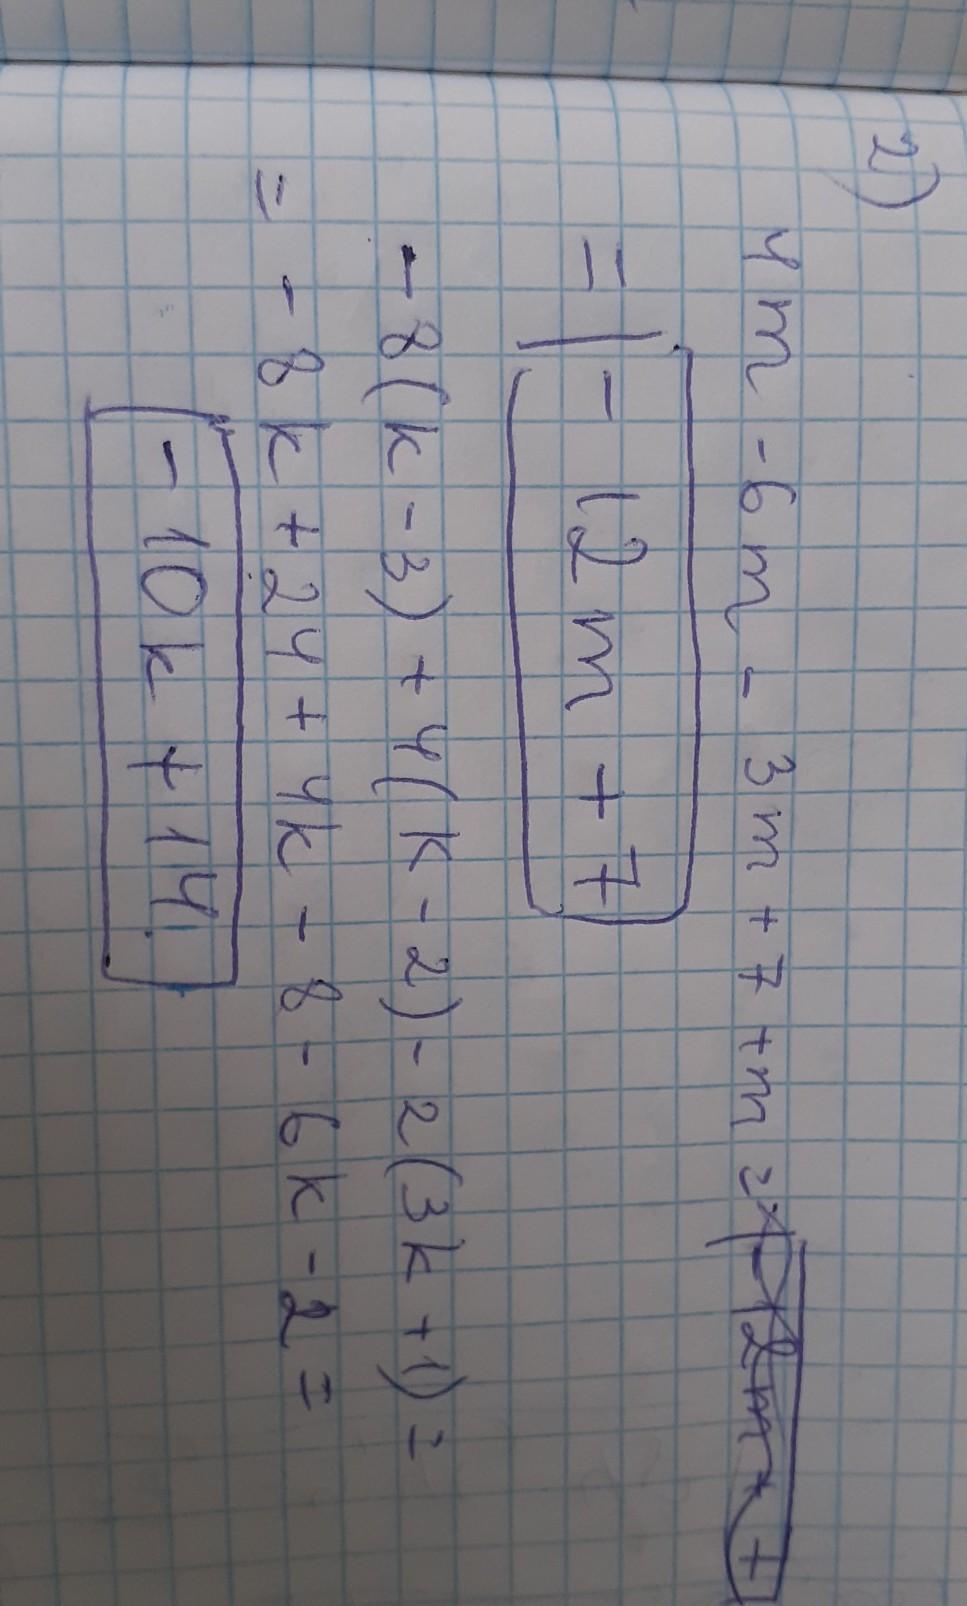 2)
4m - 6m - 3m + 7 + m =
= - 12m + 7
- 8(k - 3) + 4(k - 2) - 2(3k + 1) =
= - 8k + 24 + 4k - 8 - 6k - 2 =
- 10k + 14